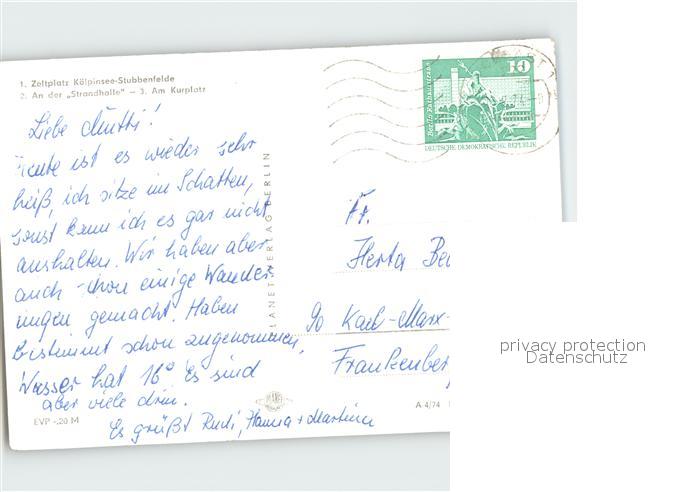 1. Zeltplatz Kölpinsee-Stubbenfelde
2. An der „Strandhalle" — 3. Am Kurplatz
Liebe Mutti!
Heute ist es wieder sehr
heiß, ich sitze im Schatten,
sonst kann ich es gar nicht
aushalten. Wir haben aber
auch schon einige Wander-
ungen gemacht. Haben
bestimmt schon zugenommen,
Wasser hat 16° Es sind
aber viele drin.
Es grüßt Rudi, Hanna + Martina
EVP -,20 M
PLANET-VERLAG BERLIN
PLANET
A 4/74
10
Berlin, Rathausstraße
DEUTSCHE DEMOKRATISCHE REPUBLIK
Fr.
Herta Be
90 Karl-Marx-
Frankenber
privacy protection
Datenschutz